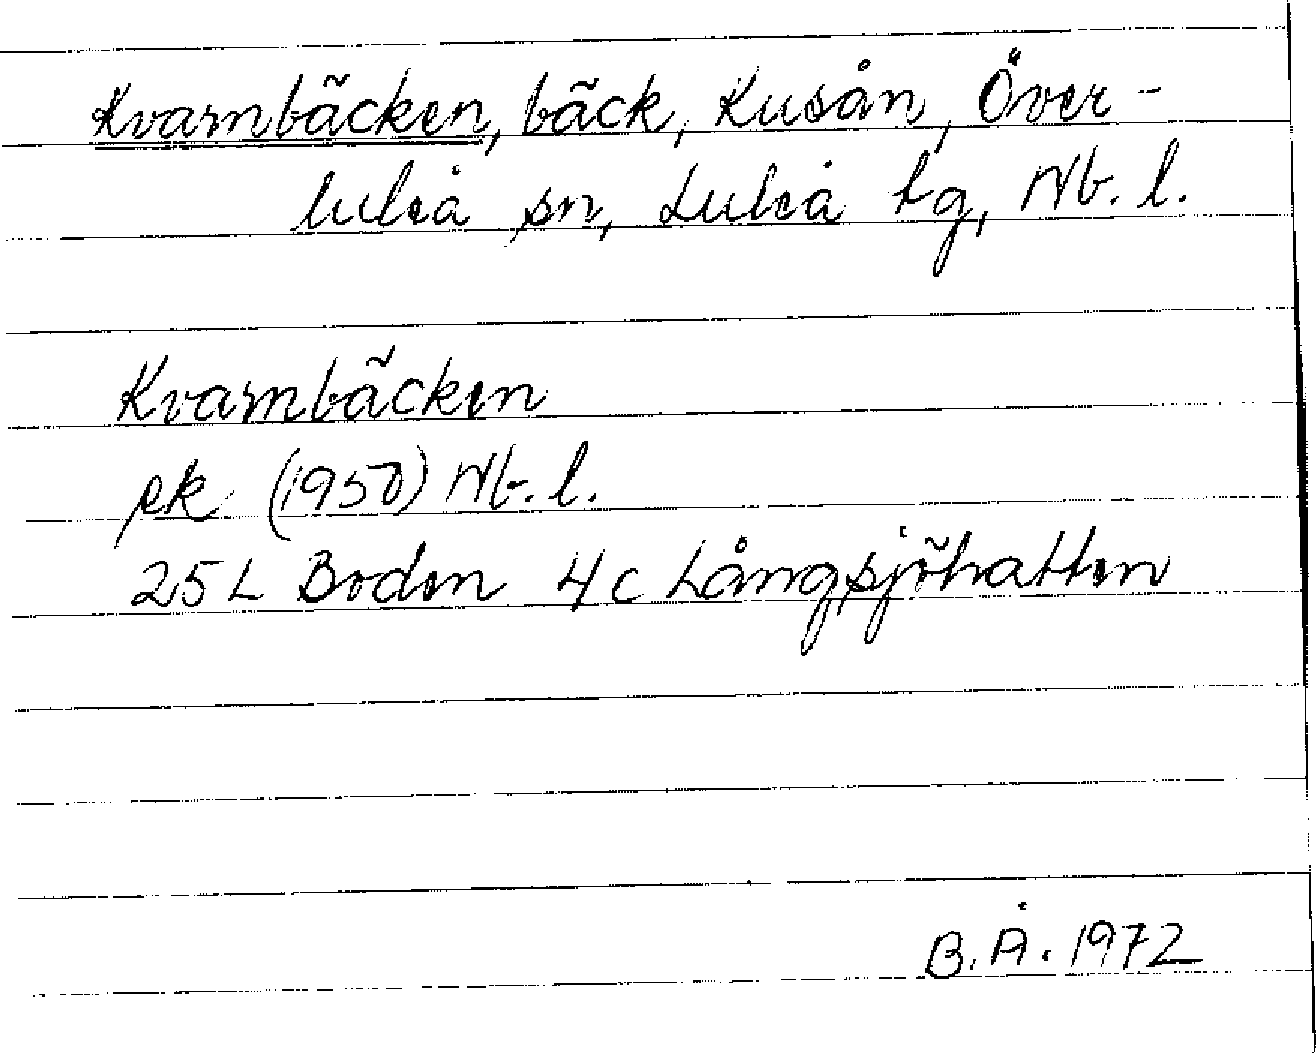 Kvarnbäcken, bäck, Kusån, Över-
luleå sn, Luleå tg, Nb. l.
Kvarnbäcken
ek (1950) Nb. l.
25 L Boden 4 c Långsjöhatten
B. Å. 1972